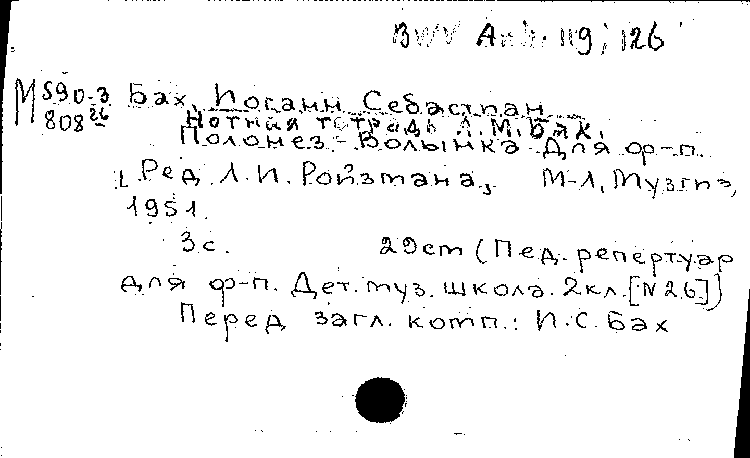 BWV Anh. 119; 126
М 590-3 Бах, Иоганн Себастиан
808 26 Нотная тетрадь А.М. Бах.
Полонез.- Волынка. Для ф-п.
[Ред. Л.И. Ройзмана], М-Л, Музгиз,
1951.
3 с. 29cm (Пед. репертуар
для ф-п. Дет. муз. школа. 2кл. [N 26])
Перед загл. комп.: И.С. Бах